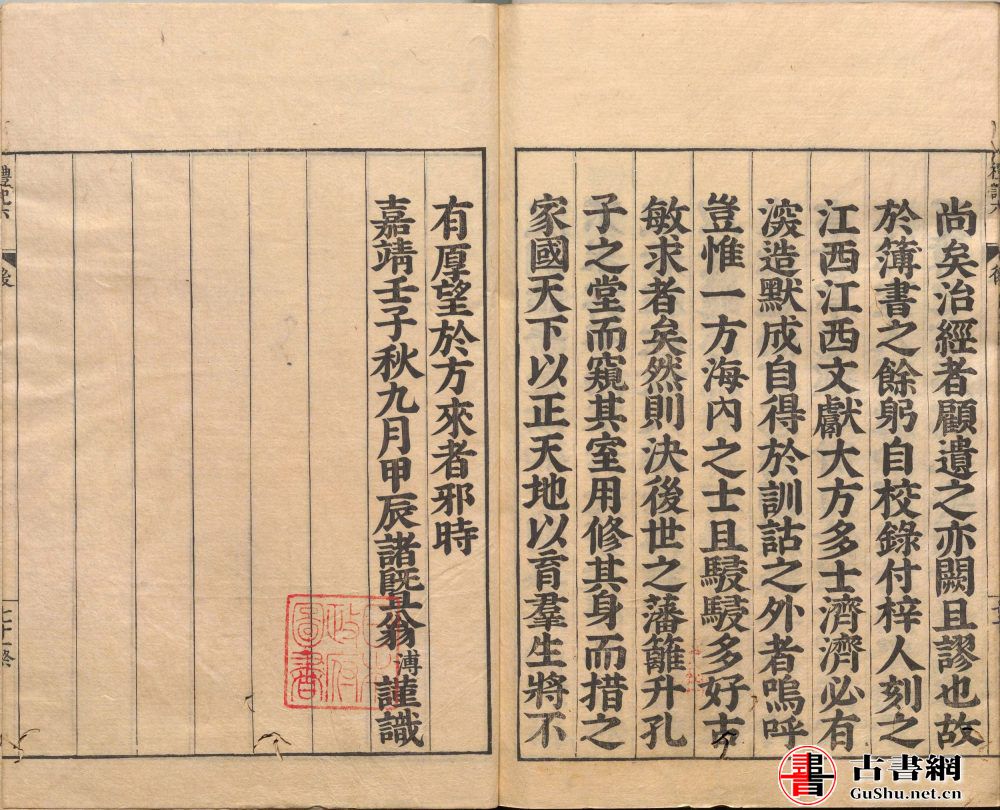 尚矣治經者顧遺之亦闕且謬也故
於簿書之餘躬自校錄付梓人刻之
江西江西文獻大方多士濟濟必有
深造默成自得於訓詁之外者嗚呼
豈惟一方海內之士且駸駸多好古
敏求者矣然則決後世之藩籬升孔
子之堂而窺其室用修其身而措之
家國天下以正天地以育羣生將不
有厚望於方來者邪時
嘉靖壬子秋九月甲辰諸暨翁溥謹識
禮記六
後
圖書
書 古書網
GuShu.net.cn